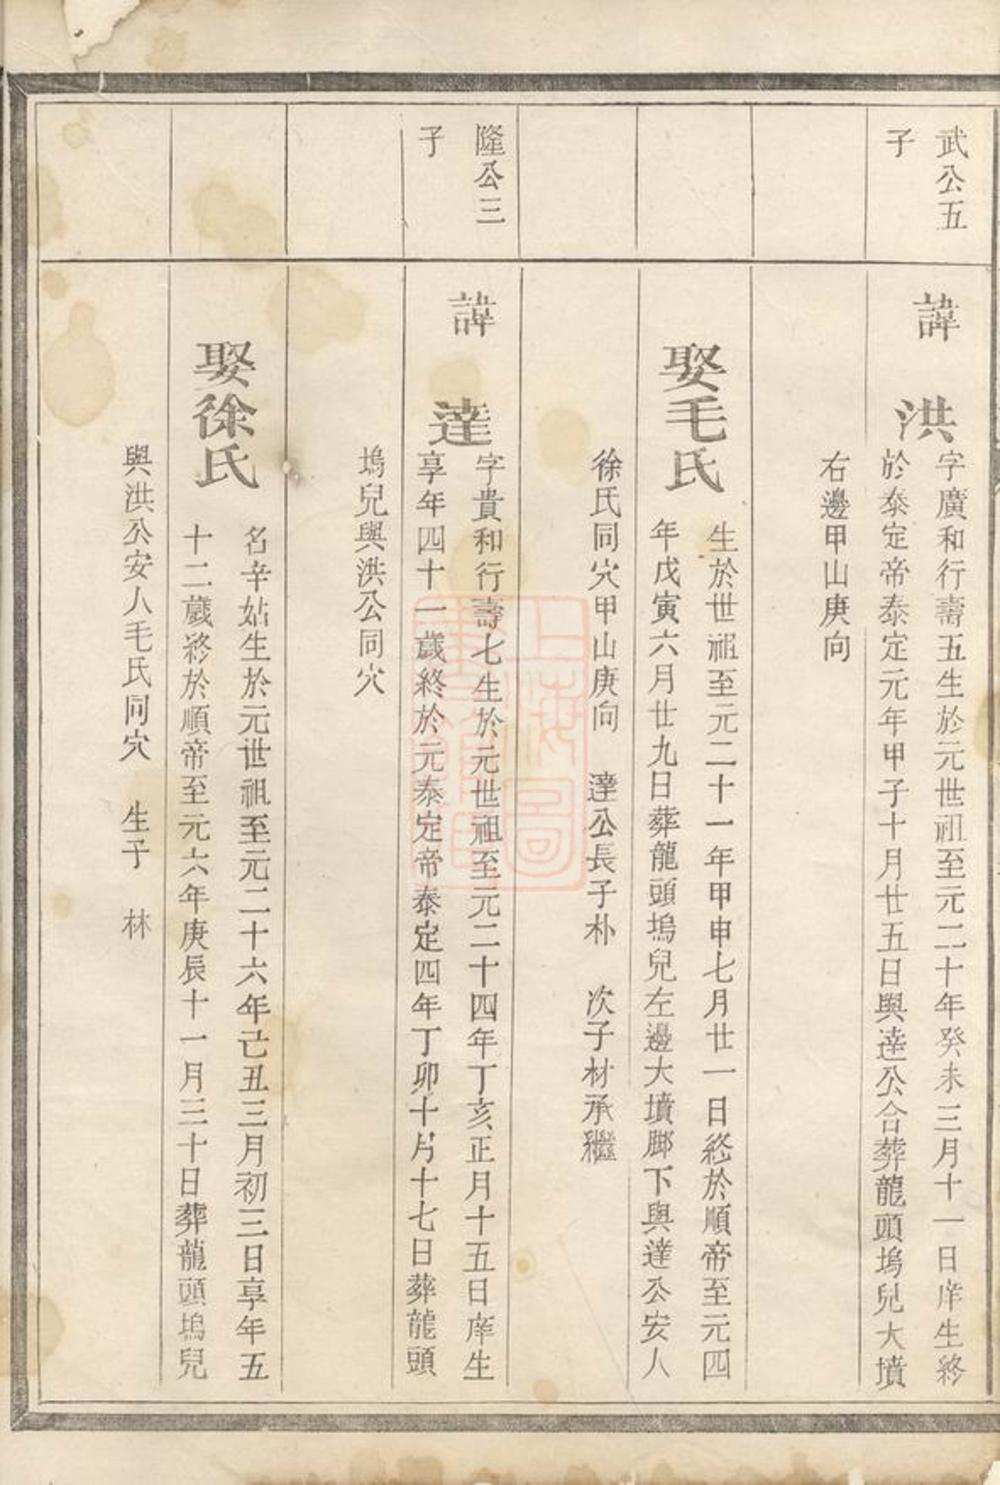 武公五
子
諱 洪
字廣和行壽五生於元世祖至元二十年癸未三月十一日庠生終
於泰定帝泰定元年甲子十月廿五日與達公合葬龍頭塢兒大墳
右邊甲山庚向
娶毛氏
生於世祖至元二十一年甲申七月廿一日終於順帝至元四
年戊寅六月廿九日葬龍頭塢兒左邊大墳脚下與達公安人
徐氏同穴甲山庚向 達公長子朴 次子材承繼
隆公三
子
諱 達
字貴和行壽七生於元世祖至元二十四年丁亥正月十五日庠生
享年四十一歲終於元泰定帝泰定四年丁卯十月十七日葬龍頭
塢兒與洪公同穴
娶徐氏
名辛姑生於元世祖至元二十六年己丑三月初三日享年五
十二歲終於順帝至元六年庚辰十一月三十日葬龍頭塢兒
與洪公安人毛氏同穴 生子 林
上海圖
書館藏